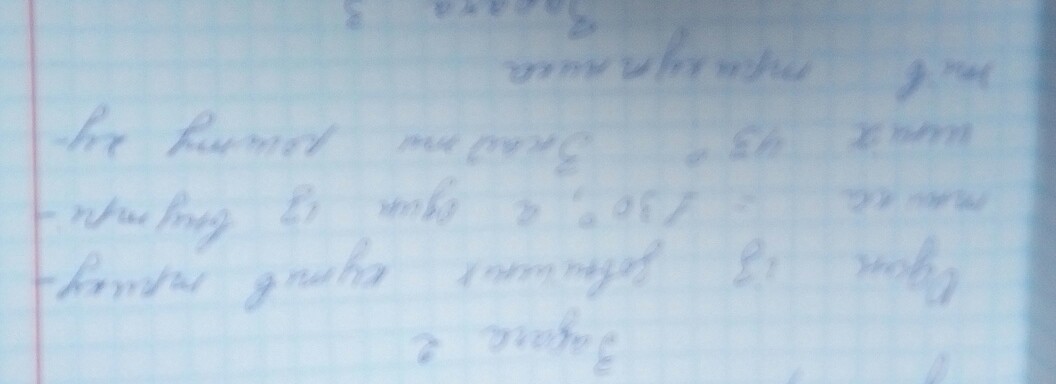 Задача 2
Один із зовнішніх кутів трику-
тника = 130°, а один із внутрі-
шніх 43° Знайти решту ку-
тів трикутника
Задача 3